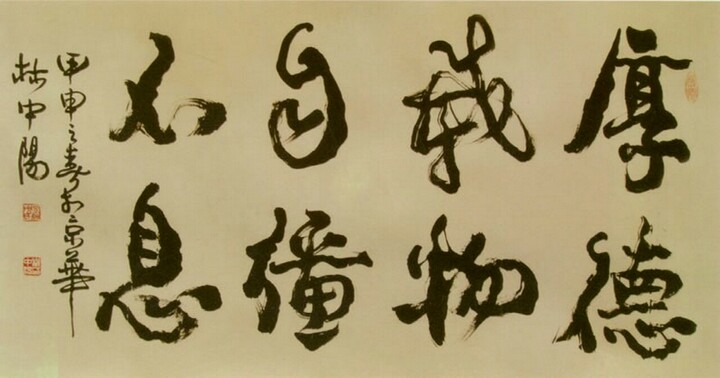 厚德
載物
自彊
不息
甲申之春於京華
林中陽